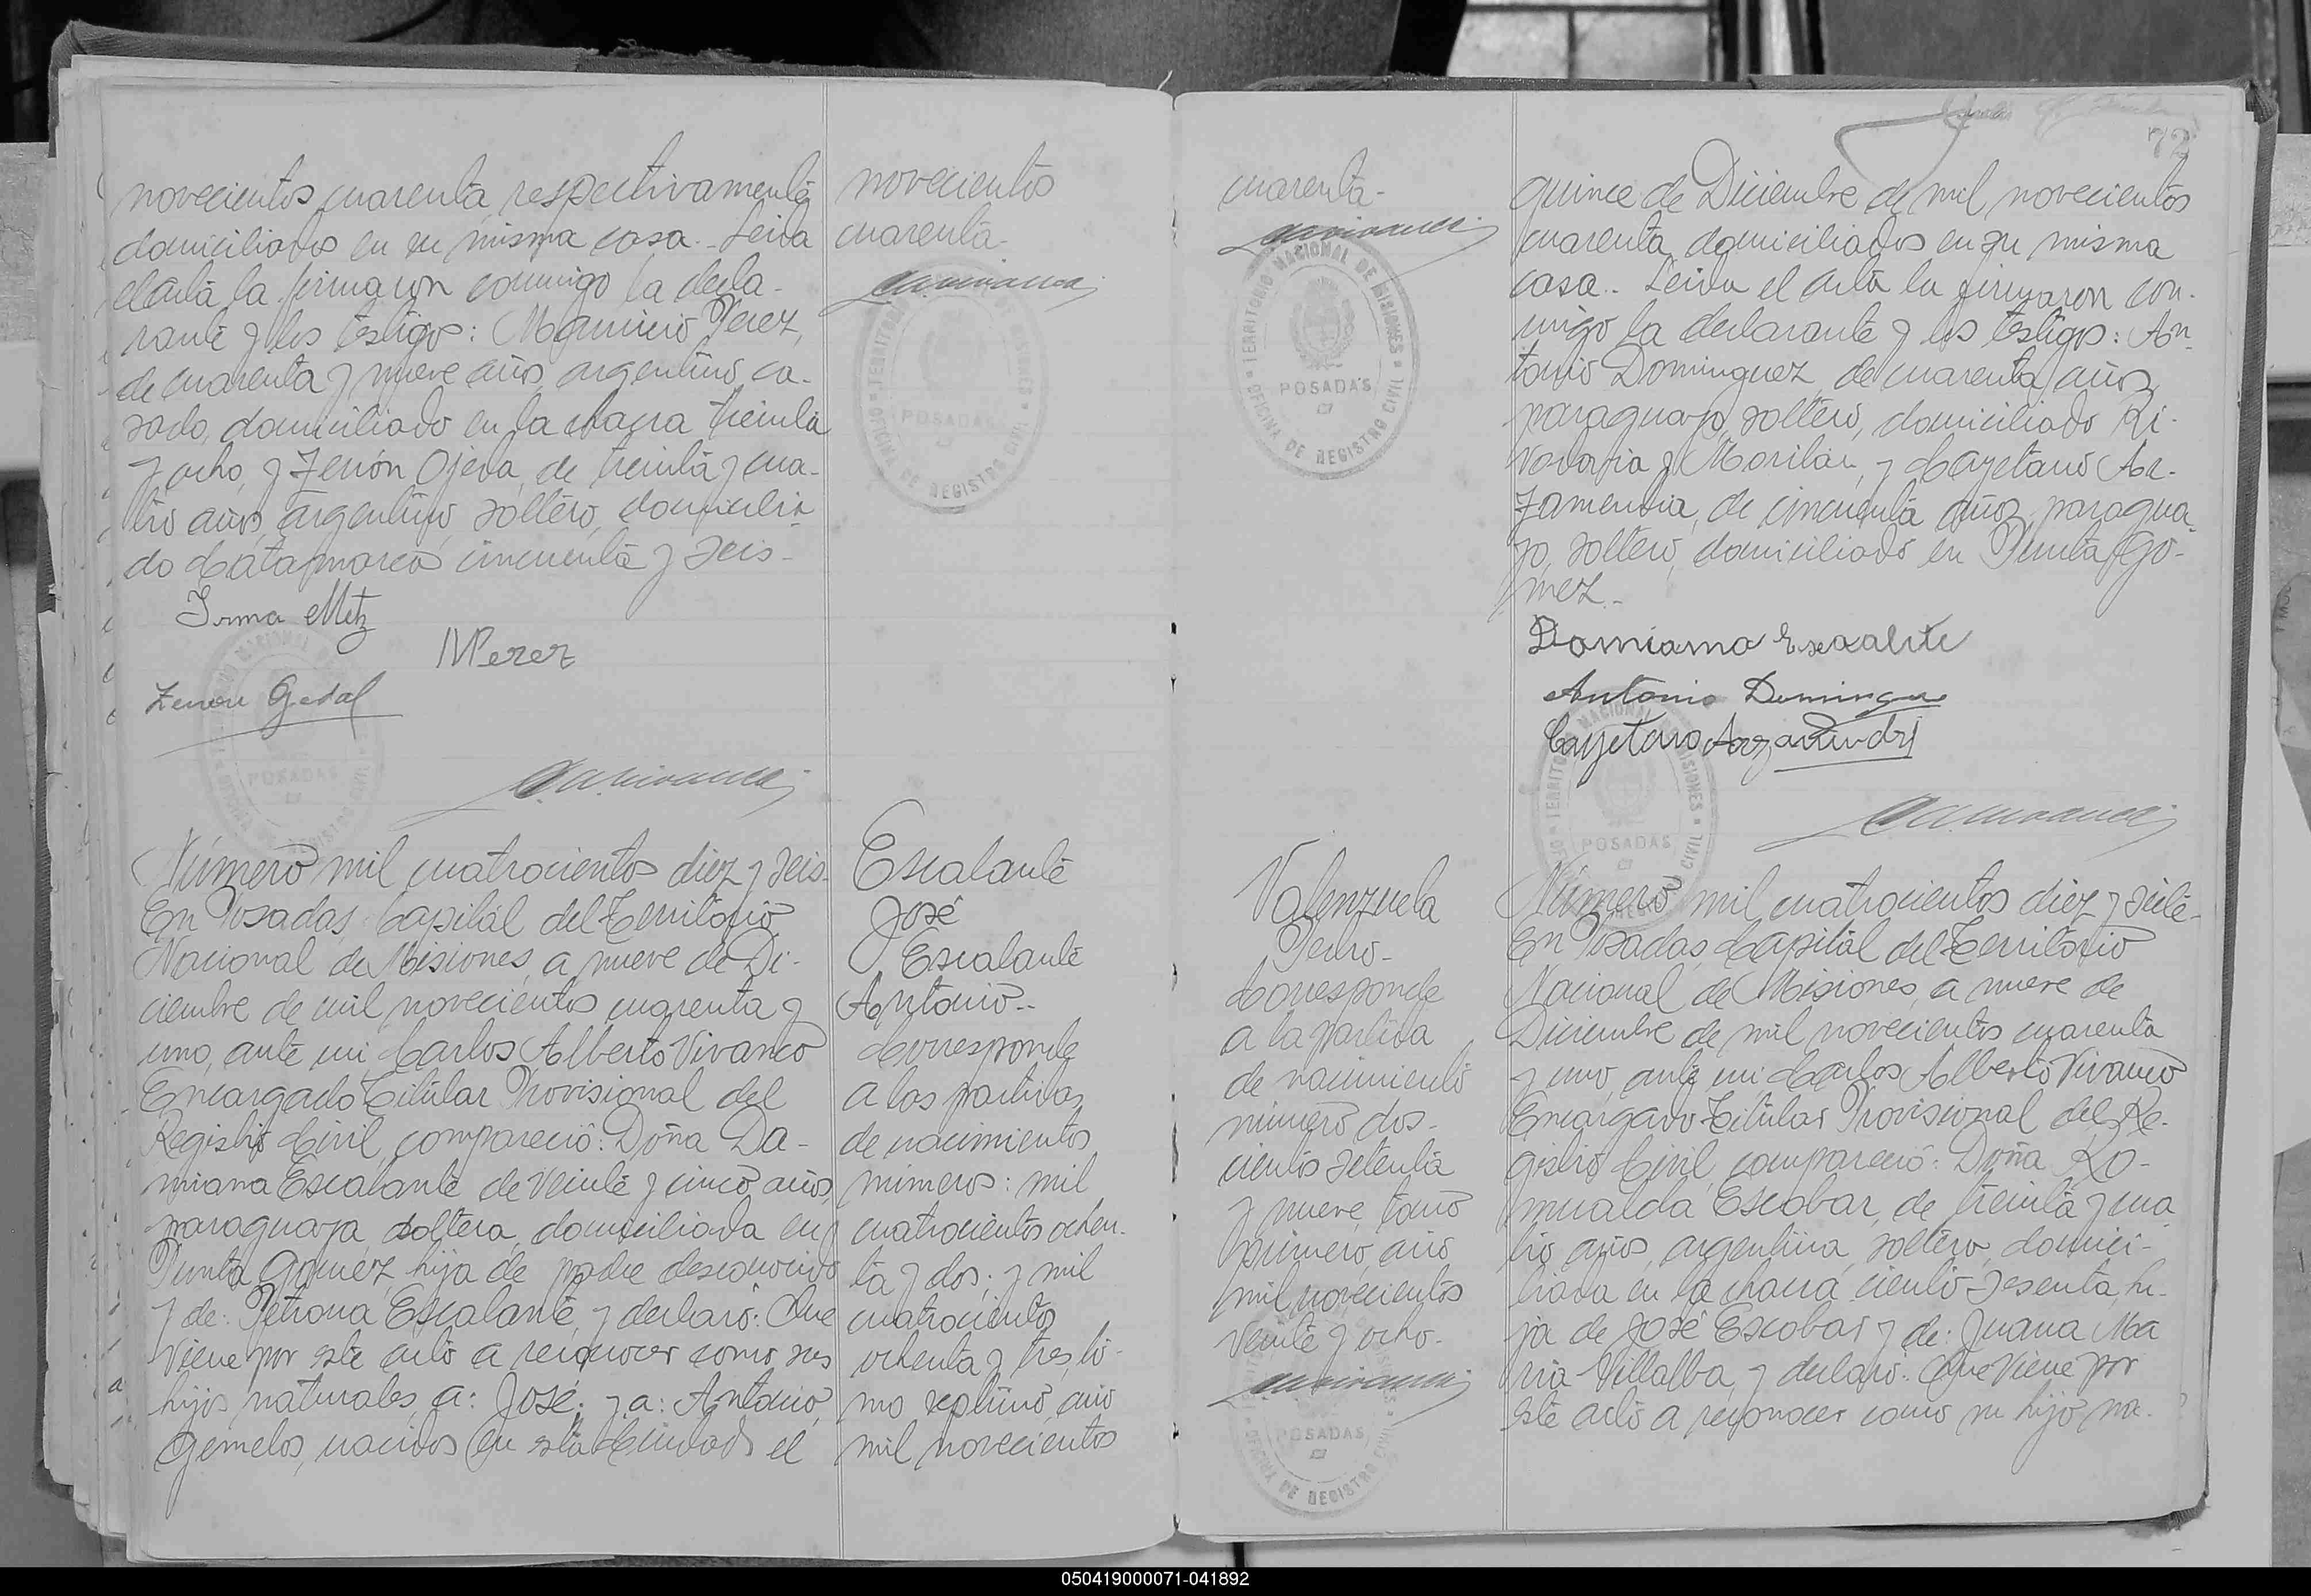 novecientos cuarenta, respectivamente
domiciliados en su misma casa.- Leida
el acta la firmaron conmigo la decla-
rante y los testigos: Mauricio Perez,
de cuarenta y nueve años, argentino, ca-
sado, domiciliado en la chacra treinta
y ocho, y Zenón Ojeda, de treinta y cua-
tro años, argentino, soltero, domicilia-
do Catamarca cincuenta y seis-
Irma Metz
MPerez
Zenon
Número mil cuatrocientos diez y seis-
En Posadas, Capital del Territorio
Nacional de Misiones, a nueve de Di-
ciembre de mil novecientos cuarenta y
uno, ante mi Carlos Alberto Vivanco
Encargado Titular Provisional del
Registro Civil, compareció: Doña Da-
miana Escalante de veinte y cinco años,
paraguaya, soltera, domiciliada en
Punta Gomez, hija de padre desconocido
y de: Petrona Escalante, y declaró: Que
viene por este acto a reconocer como sus
hijos naturales, a: José; y a: Antonio,
gemelos, nacidos en esta Ciudad, el
novecientos
cuarenta-
TERRITORIO NACIONAL DE MISIONES
POSADAS
OFICINA DE REGISTRO CIVIL
Escalante
José
Escalante
Antonio.-
Corresponde
a las partidas
de nacimientos
números: mil
cuatrocientos ochen-
ta y dos; y mil
cuatrocientos
ochenta y tres, to-
mo septimo, año
mil novecientos
cuarenta-
TERRITORIO NACIONAL DE MISIONES
POSADAS
OFICINA DE REGISTRO CIVIL
Valenzuela
Pedro-
Corresponde
a la partida
de nacimiento
número dos-
cientos setenta
y nueve, tomo
primero, año
mil novecientos
veinte y ocho-
POSADAS
OFICINA DE REGISTRO CIVIL
72
quince de Diciembre de mil novecientos
cuarenta, domiciliados en su misma
casa.- Leida el acta la firmaron con-
migo la declarante y los testigos: An-
tonio Dominguez, de cuarenta años,
paraguayo, soltero, domiciliado Ri-
vadavia y y Cayetano Ar-
zamendia, de cincuenta años, paragua-
yo, soltero, domiciliado en Punta Gó-
mez.-
Damiana Escalante
Antonio Domingue
Cayetano
TERRITORIO NACIONAL DE MISIONES
POSADAS
Número mil cuatrocientos diez y siete-
En Posadas, Capital del Territorio
Nacional de Misiones, a nueve de
Diciembre de mil novecientos cuarenta
y uno, ante mi Carlos Alberto Vivanco
Encargado Titular Provisional del Re-
gistro Civil, compareció: Doña Ro-
mualda Escobar, de treinta y cua
tro años, argentina, soltera, domici-
liada en la chacra ciento sesenta, hi-
ja de José Escobar y de: Juana Ma
ria Villalba, y declaró: Que viene por
este acto a reconocer como su hijo na-
050419000071-041892